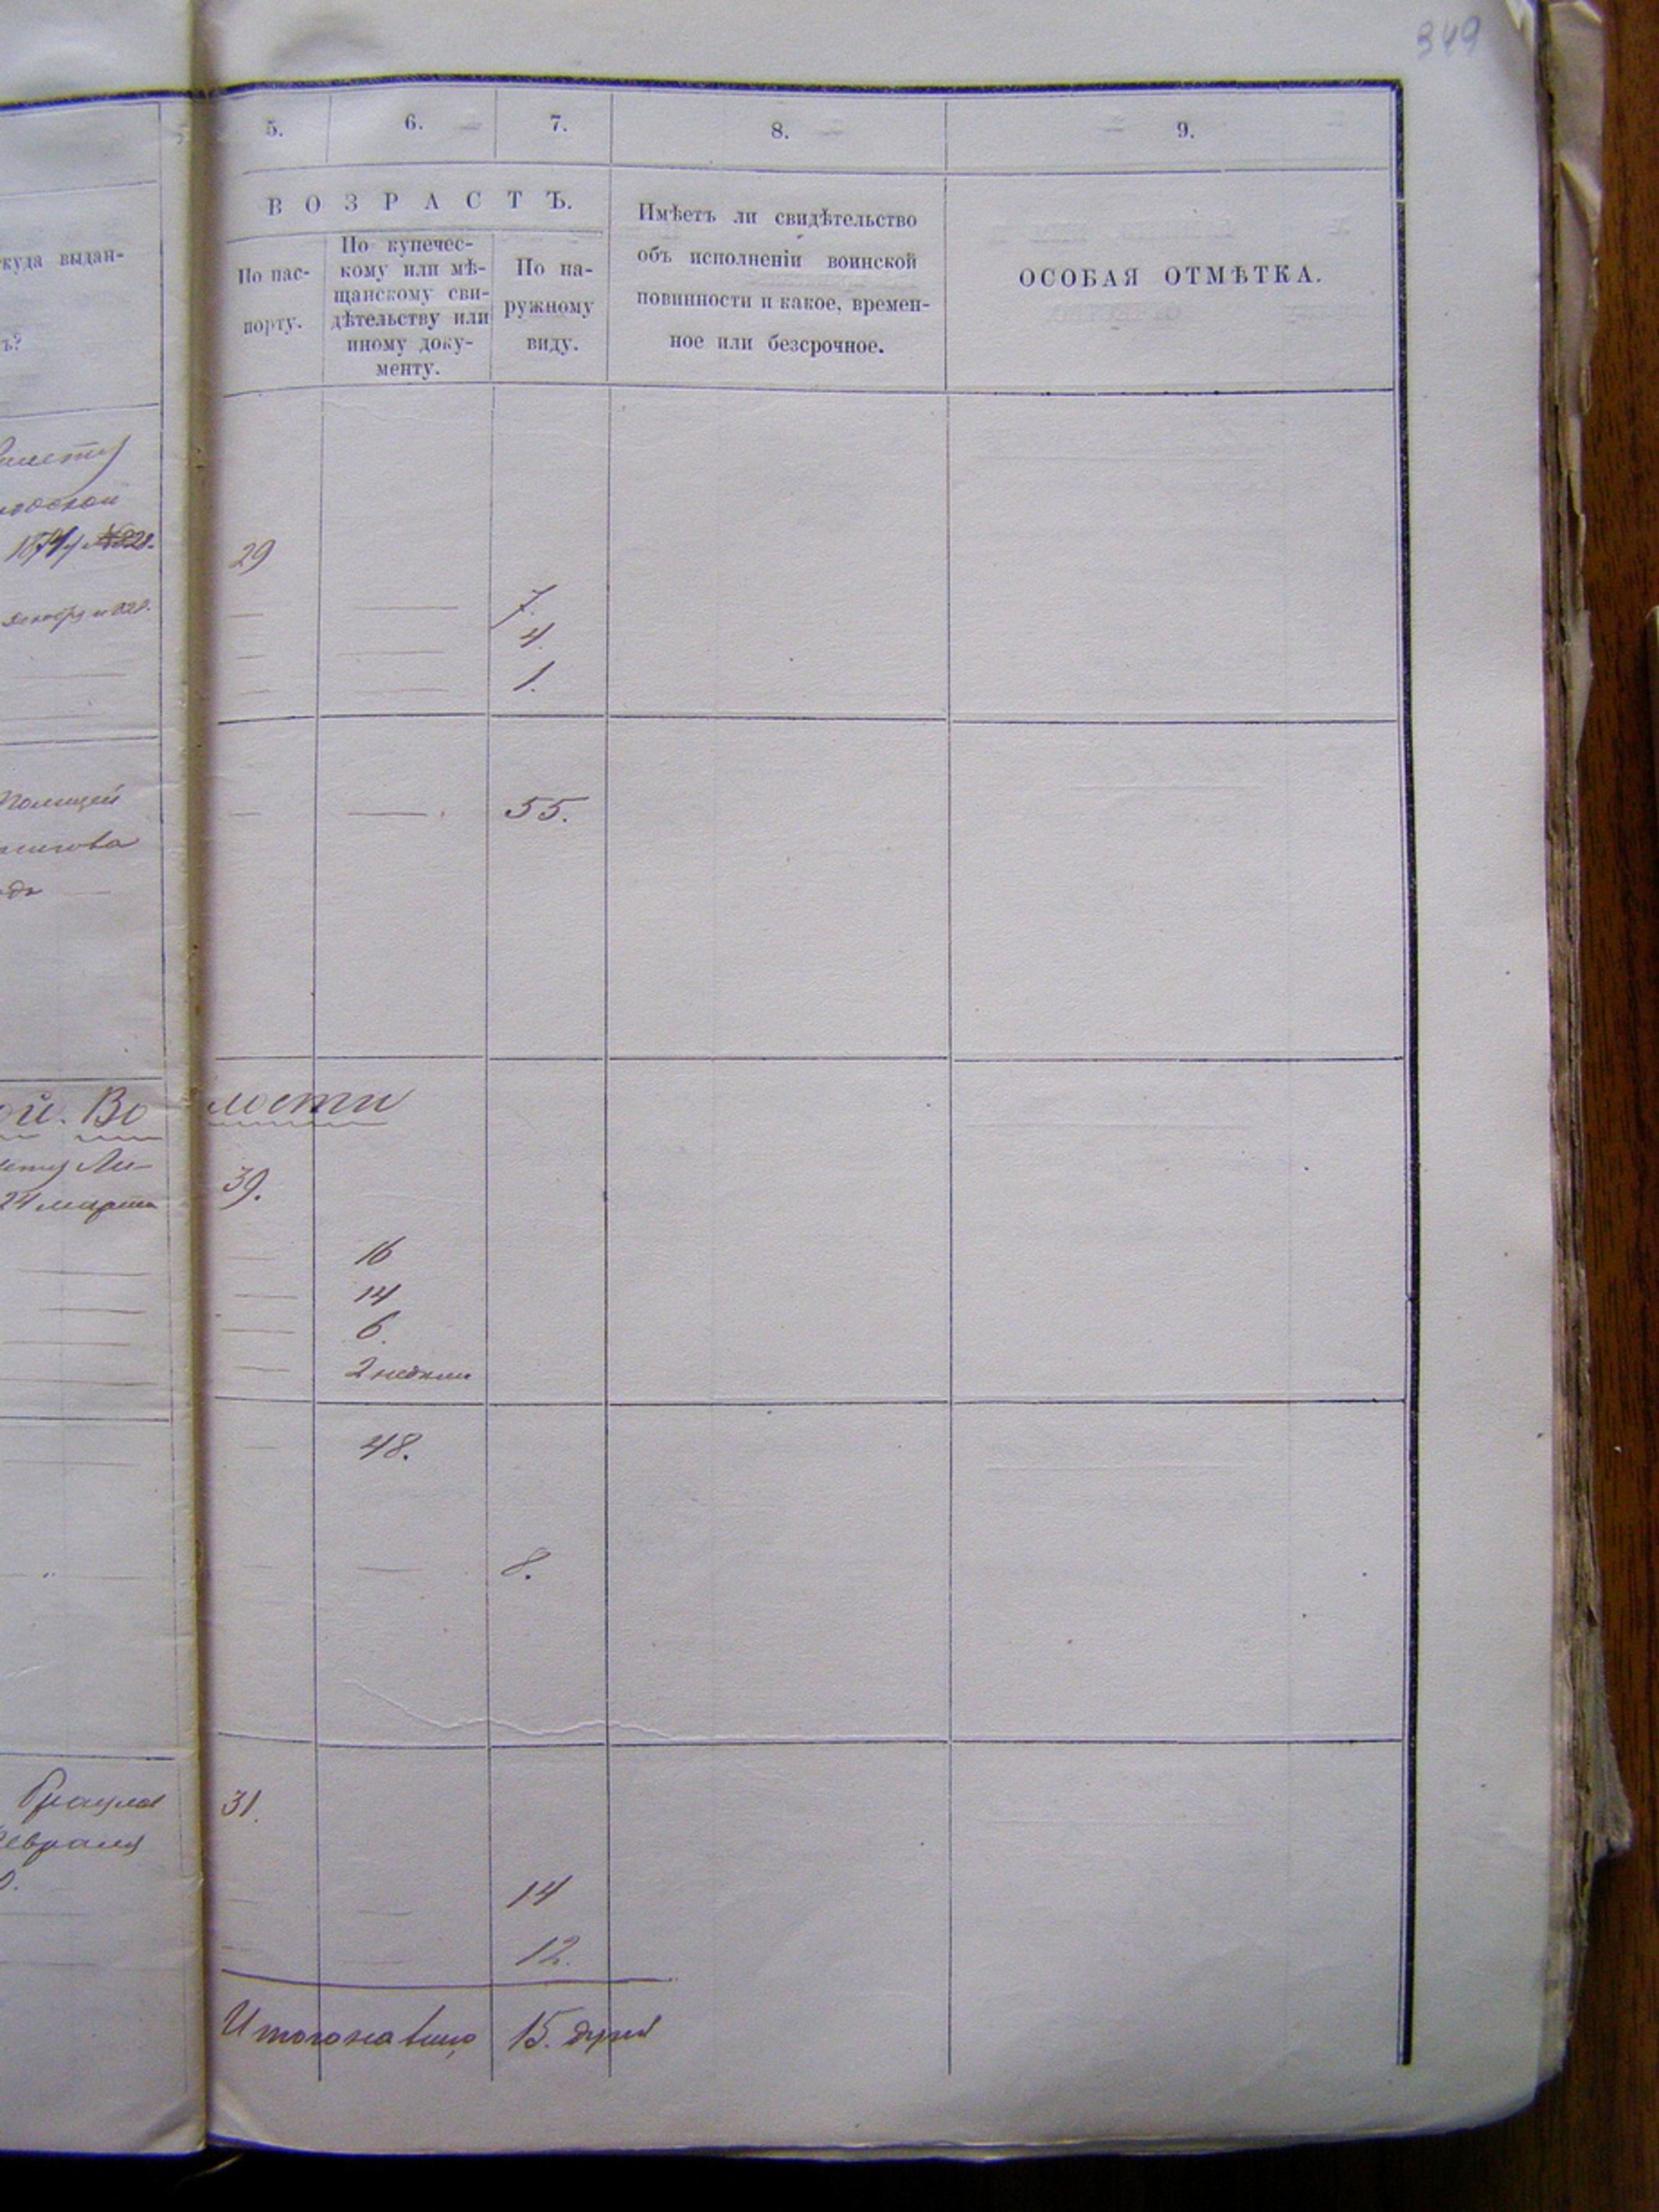 349
5. 6. 7. 8. 9.
ВОЗРАСТЪ.
По пас-
порту.
По купечес-
кому или мѣ-
щанскому сви-
дѣтельству или
иному доку-
менту.
По на-
ружному
виду.
Имѣетъ ли свидѣтельство
объ исполненіи воинской
повинности и какое, времен-
ное или безсрочное.
ОСОБАЯ ОТМѢТКА.
куда выдан-
ъ?
29
— — 7.
— — 4.
— — 1.
— — 55.
ой. Во лости
24 марта 39.
— 16
— 14
— 6.
— 2 недели
— 48.
— — 8.
31.
евраля
— — 14
— — 12.
Итого на лицо 15. душъ